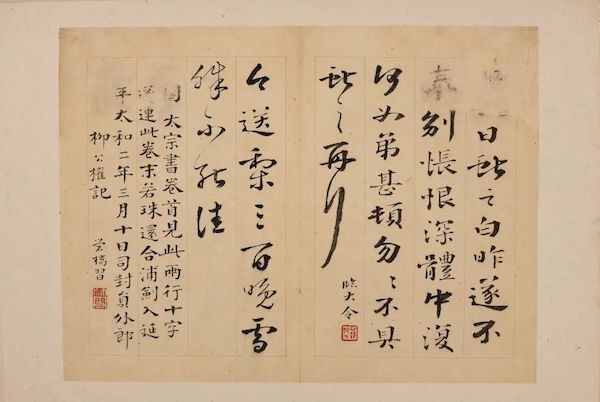 日獻之白昨遂不
奉別悵恨深體中復
何如弟甚頓勿勿不具
獻之再拜
臨大令
今送梨三百晚雪
殊不能佳
因太宗書卷首見此兩行十字
遂連此卷末若珠還合浦劍入延
平太和二年三月十日司封員外郎
柳公權記
橋習